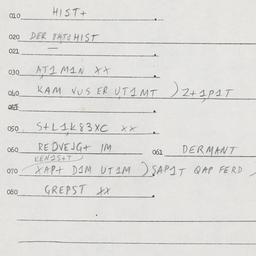 010 HIST+
020 DER HIST
021
030 AT1M1N XX
040 KAM VUS ER UT1MT )Z+1P1T
050 S+L1K83XC XX
060 REDVEJG+ IM 061 DERMANT
070 XAP+ D1M UT1M )SAP1T QAP FERD
080 GREPST XX